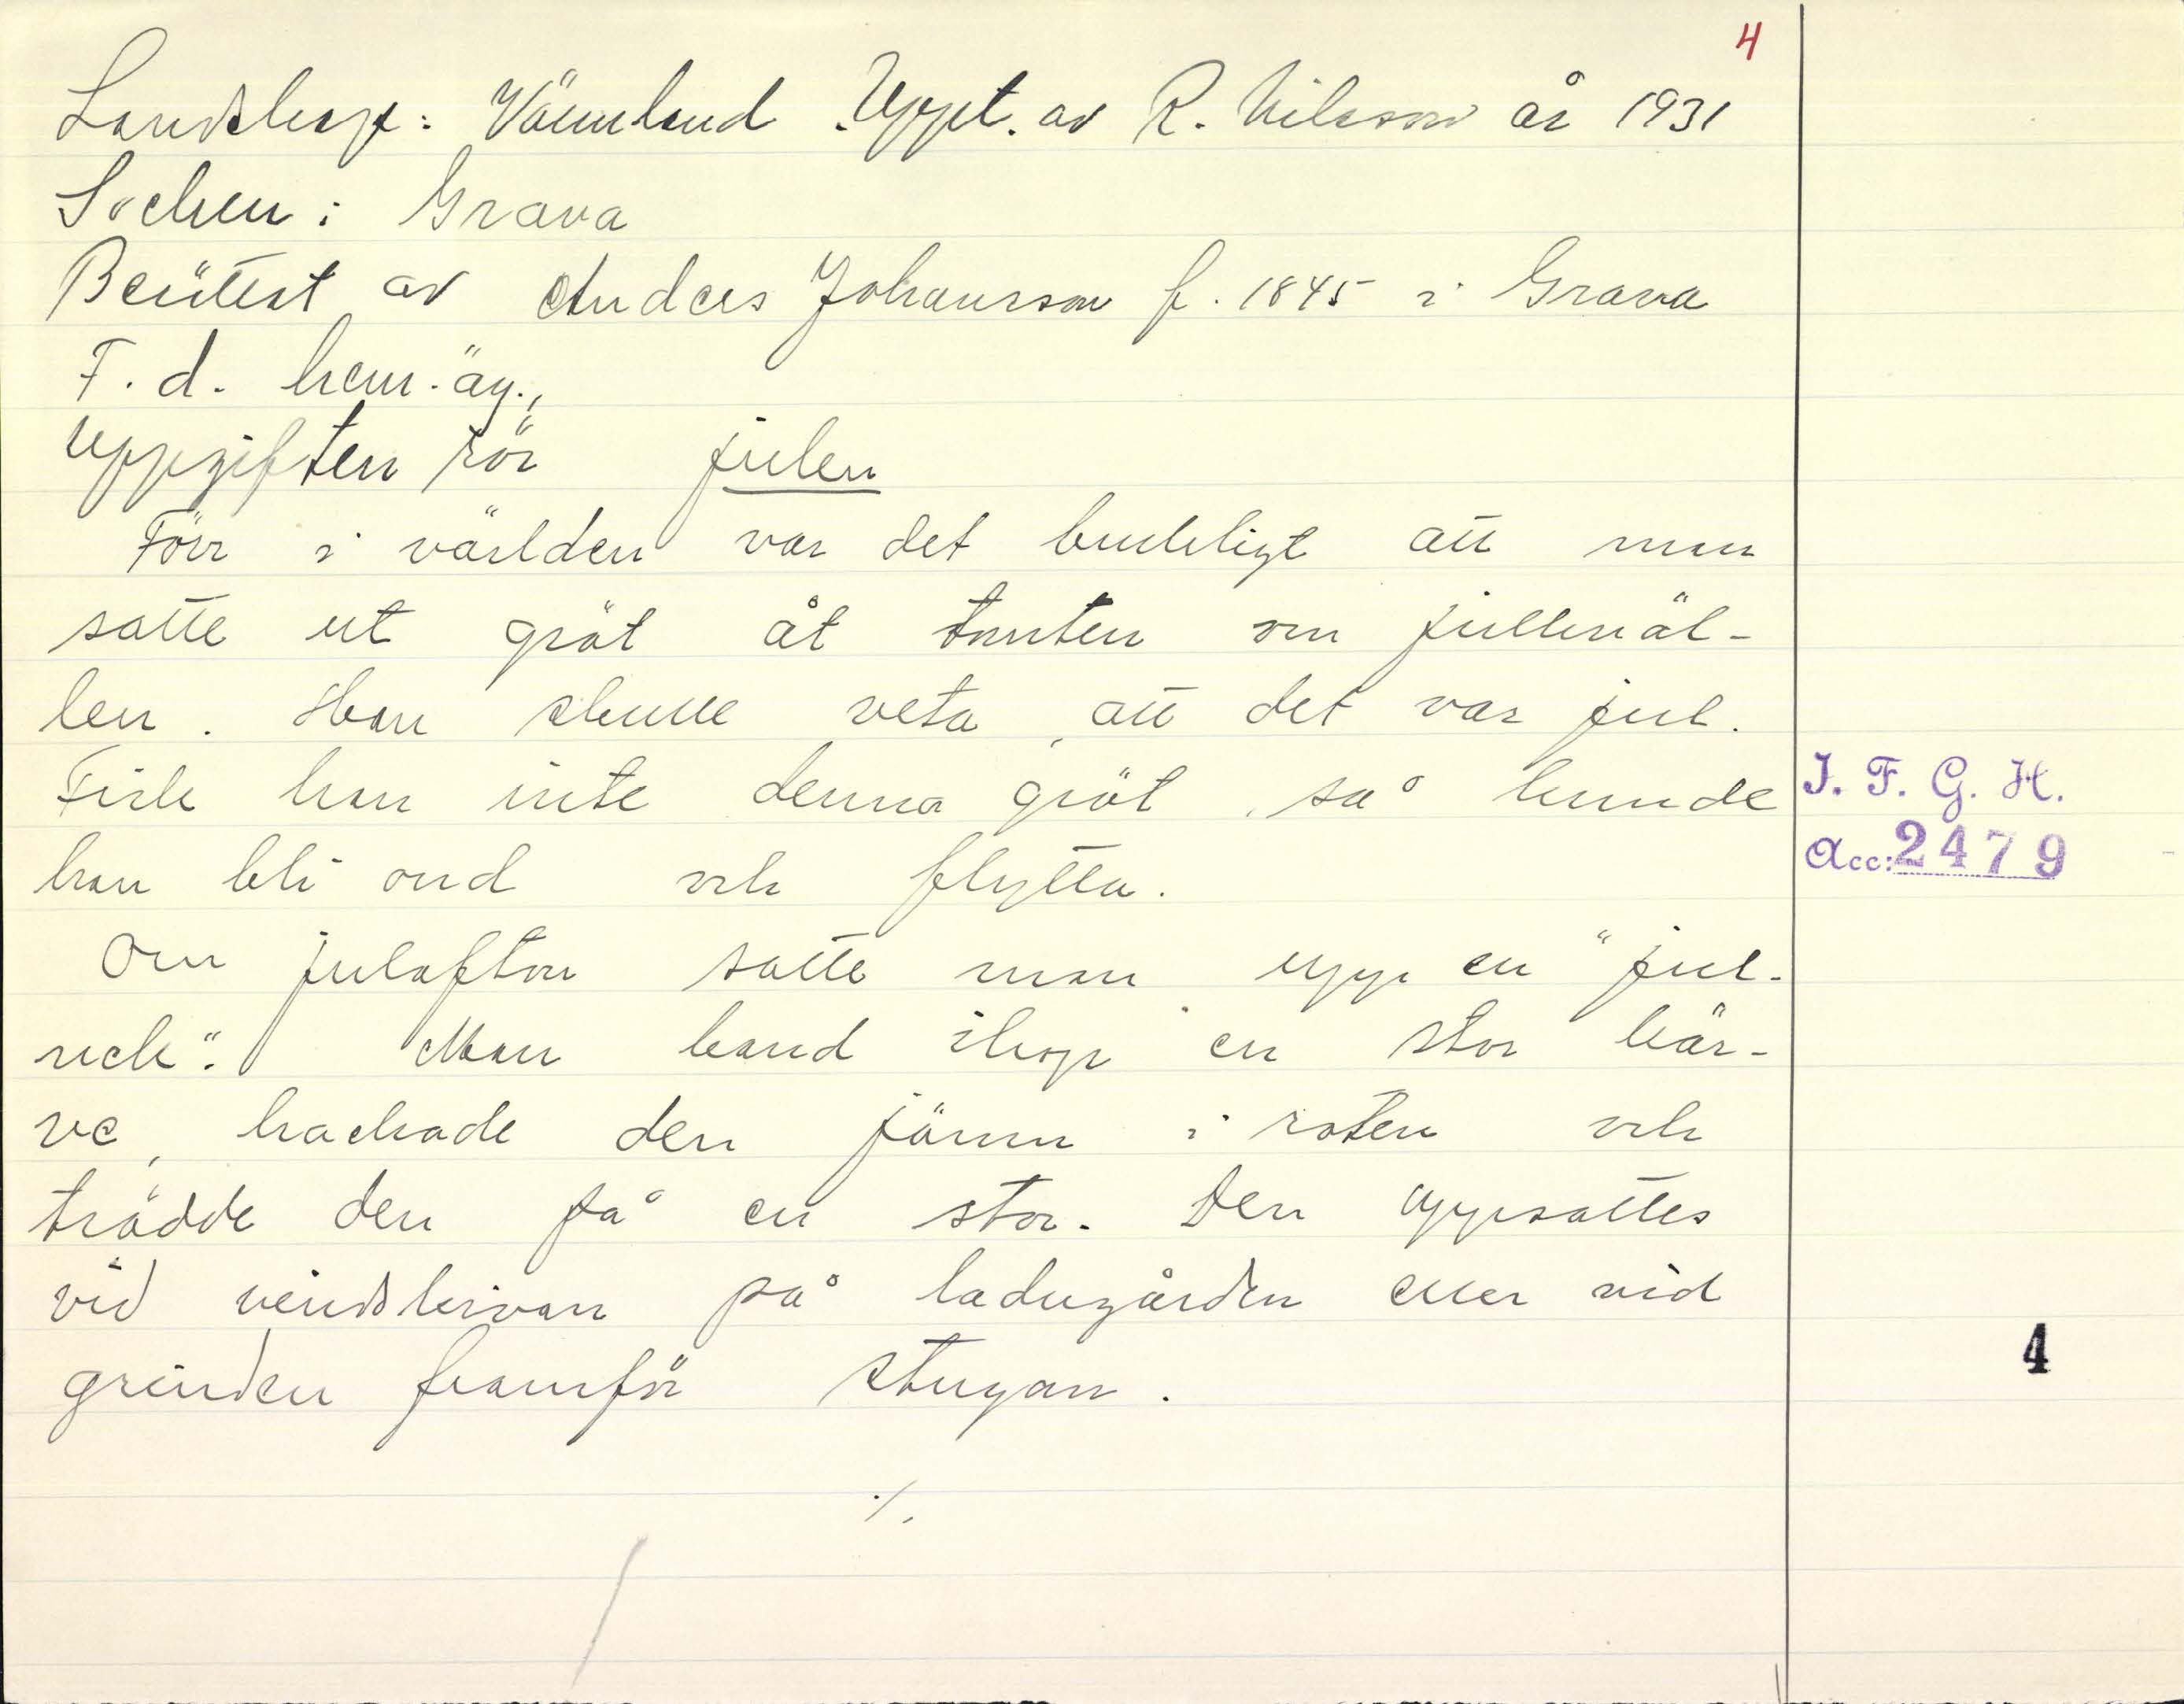 4
Landskap: Värmland Uppt. av R. Nilsson år 1931
Socken: Grava
Berättat av Anders Johansson f. 1845 i Grava
F. d. hem. äg.,
Uppgiften rör julen
Förr i världen var det brukligt att man
satte ut gröt åt tomten om julkväl-
len. Han skulle veta, att det var jul.
Fick han inte denna gröt, så kunde
han bli ond och flytta.
Om julafton satte man upp en "jul-
nek". Man band ihop en stor kär-
ve, hackade den jämn i roten och
trädde den på en stör. Den uppsattes
vid vindskivan på ladugården eller vid
grinden framför stugan.
./.
I. F. G. H.
Acc: 2479
4